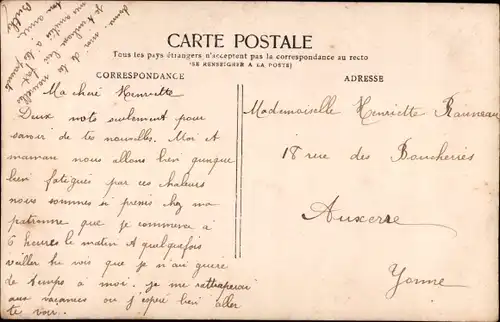 CARTE POSTALE
Tous les pays étrangers n'acceptent pas la correspondance au recto
(SE RENSEIGNER A LA POSTE)
CORRESPONDANCE
ADRESSE
Ma cheré Henriette
Deux mots seulement pour
savoir de tes nouvelles. Moi et
maman nous allons bien quoique
bien fatigués par ces chaleurs
nous sommes si pressés chez ma
patronne que je commence à
6 heures le matin et quelquefois
veiller le soir que je n'ai guère
de temps à moi. Je me rattraperai
aux vacances où j'espère bien aller
te voir.
donne moi de tes nouvelles
Je t'embrasse
ton amie
Mademoiselle Henriette Rauneau
18 rue des Boucheries
Auxerre
Yonne